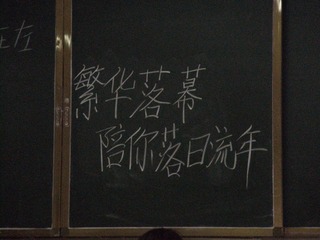 正在
繁华落幕
陪你落日流年